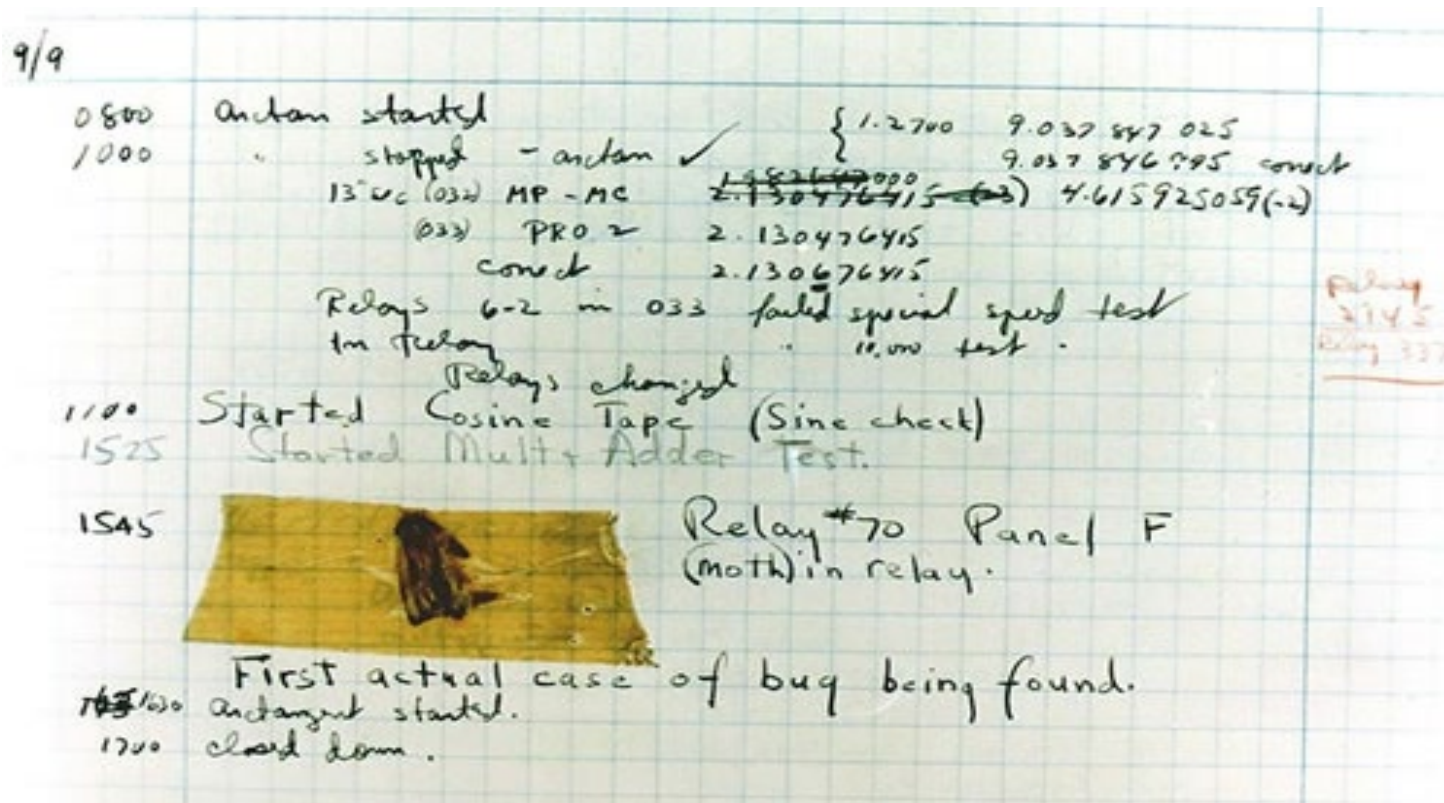 9/9
0800 arctan started { 1.2700 9.037 847 025
1000 " stopped - arctan ✓ 9.037 846 795 conect
13"uc (032) MP - MC 2.130476415 (-3) 4.615925059(-2)
(033) PRO 2 2.130476415
conect 2.130676415
Relays 6-2 in 033 failed special speed test
in Relay " 10,000 test .
Relay
2145
Relay 337
Relays changed
1100 Started Cosine Tape (Sine check)
1525 Started Mult + Adder Test.
1545 Relay #70 Panel F
(moth) in relay.
First actual case of bug being found.
1630 arctangent started.
1700 closed down.